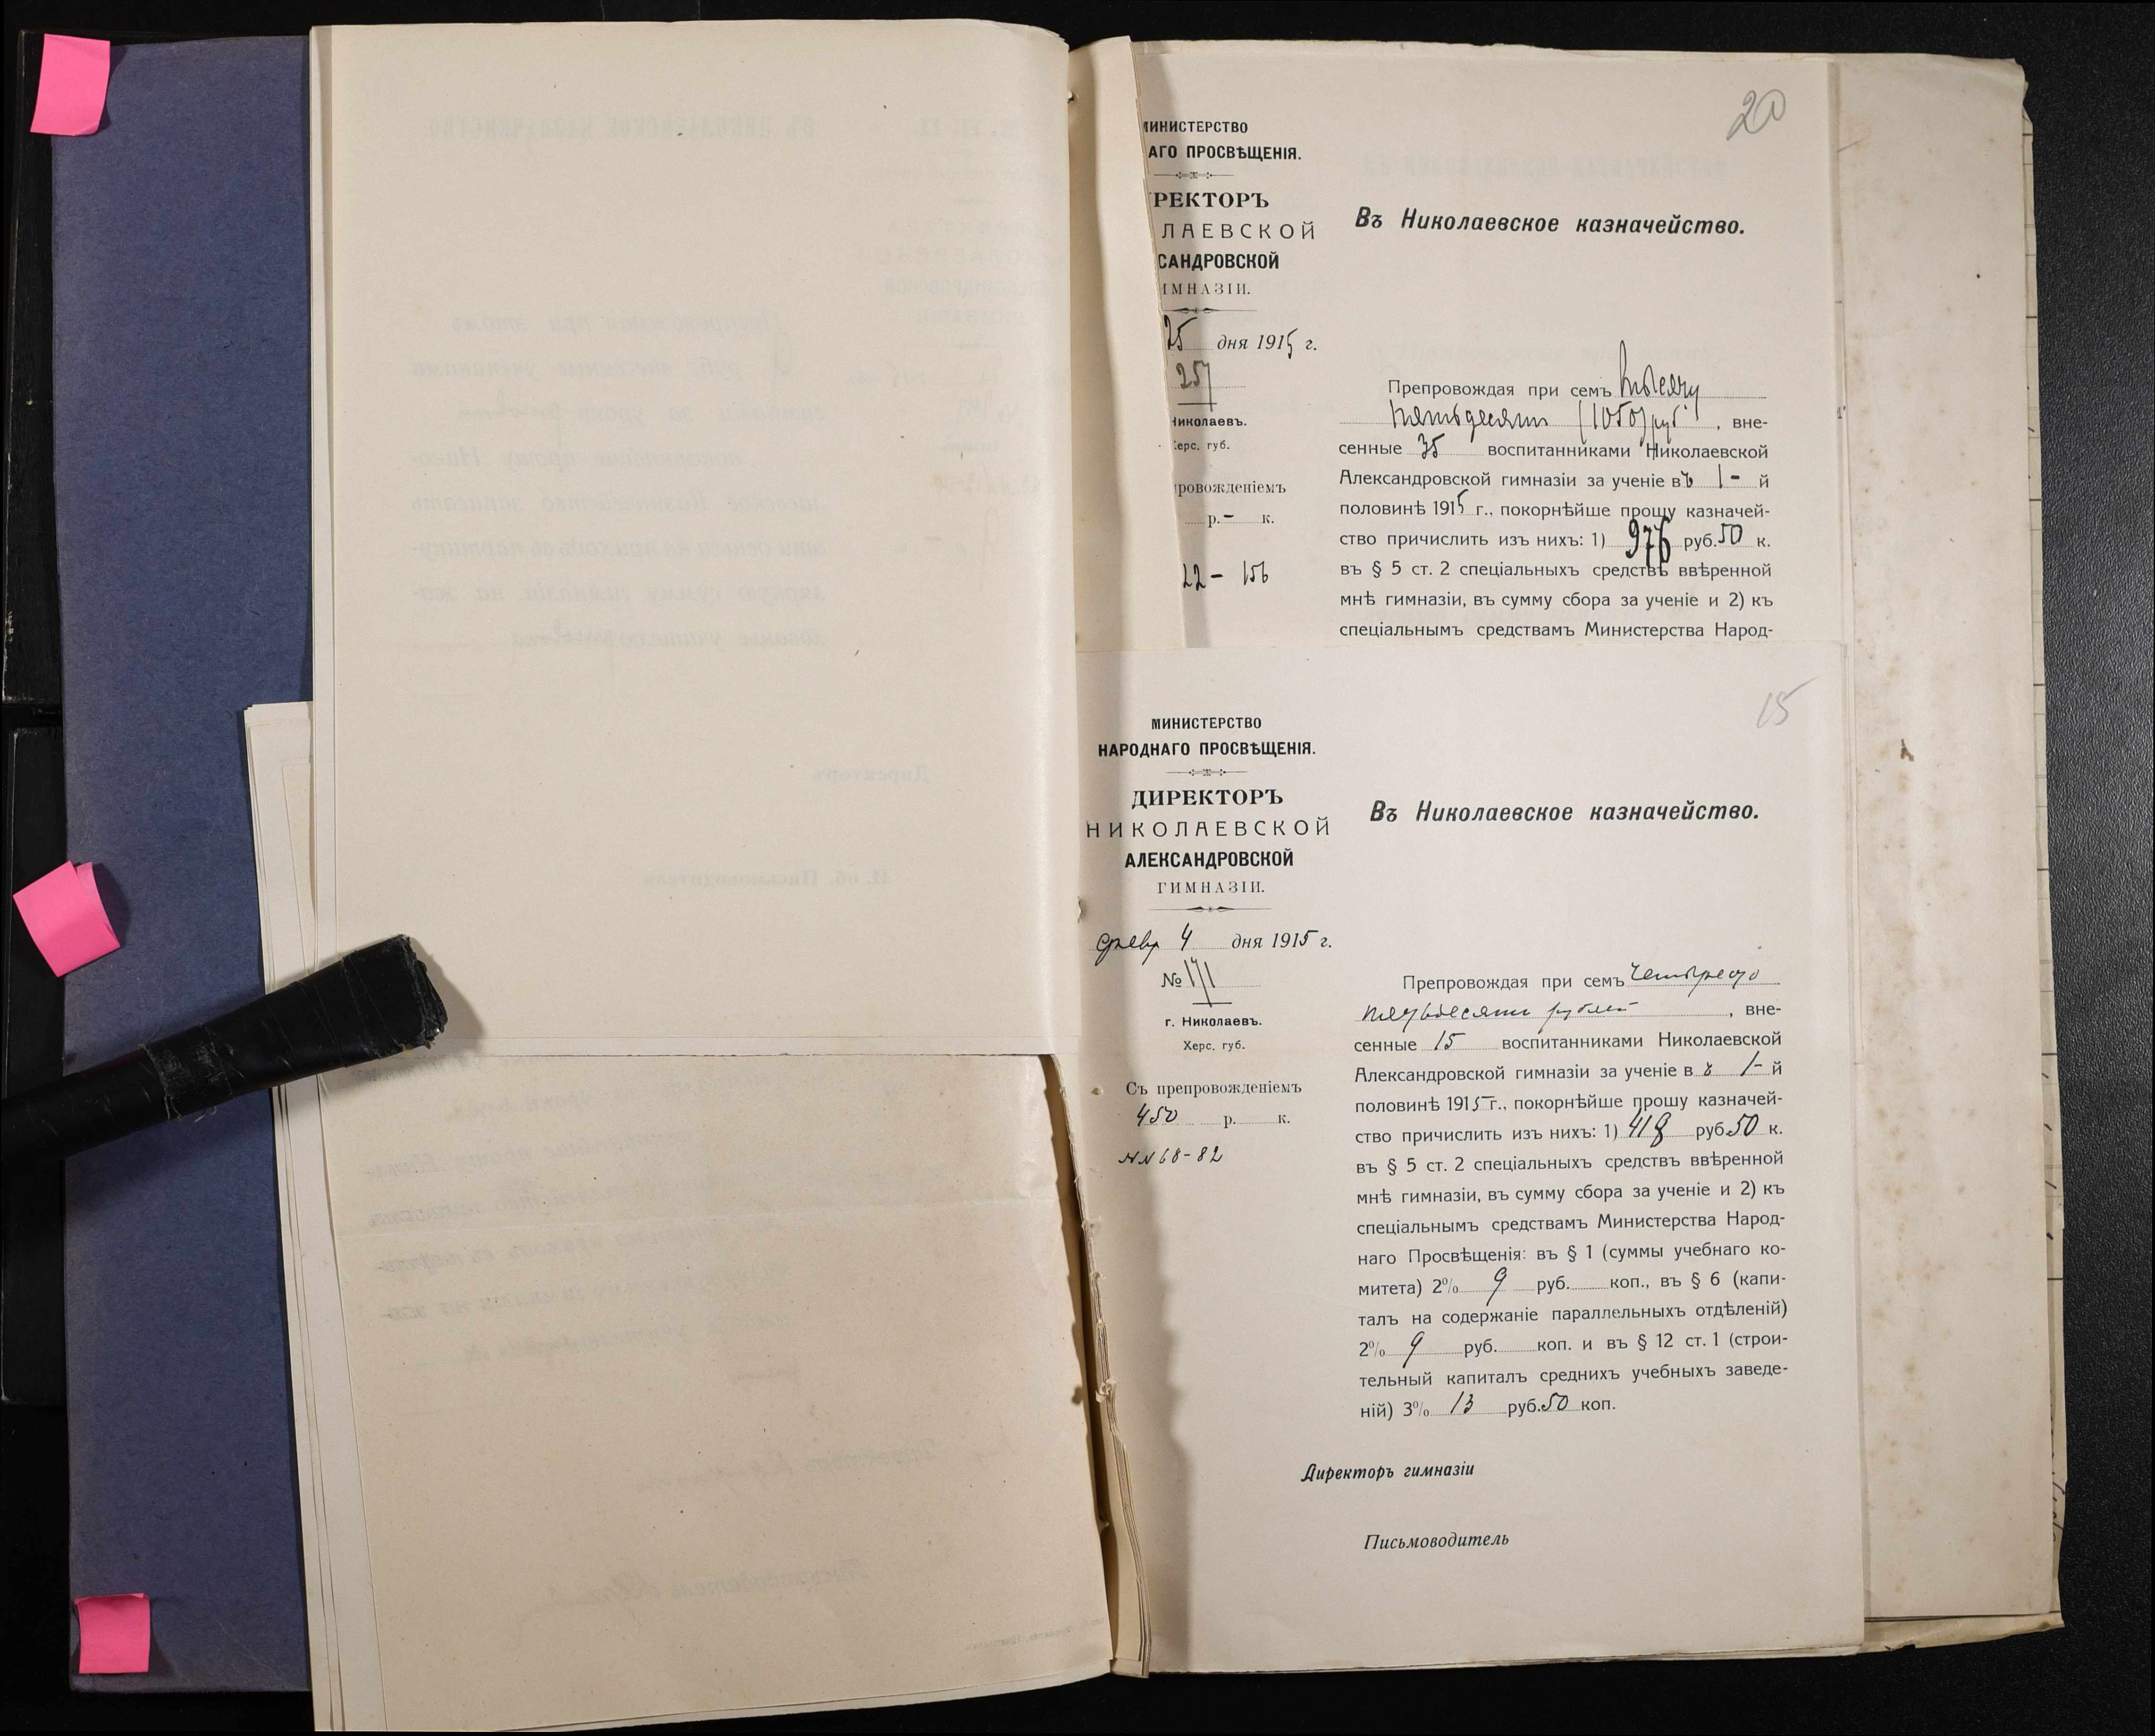 20
МИНИСТЕРСТВО
АГО ПРОСВѢЩЕНІЯ.
РЕКТОРЪ
ЛАЕВСКОЙ
САНДРОВСКОЙ
ИМНАЗІИ.
25 дня 1915 г.
257
Николаевъ.
Херс. губ.
провожденіемъ
р. - к.
22 - 156
Въ Николаевское казначейство.
Препровождая при семъ тысячу
пятьдесятъ (1050) руб. , вне-
сенные 35 воспитанниками Николаевской
Александровской гимназіи за ученіе въ 1-й
половинѣ 1915 г., покорнѣйше прошу казначей-
ство причислить изъ нихъ: 1) 976 руб. 50 к.
въ § 5 ст. 2 спеціальныхъ средствъ ввѣренной
мнѣ гимназіи, въ сумму сбора за ученіе и 2) къ
спеціальнымъ средствамъ Министерства Народ-
15
МИНИСТЕРСТВО
НАРОДНАГО ПРОСВѢЩЕНІЯ.
ДИРЕКТОРЪ
НИКОЛАЕВСКОЙ
АЛЕКСАНДРОВСКОЙ
ГИМНАЗІИ.
февр 4 дня 1915 г.
№ 171
г. Николаевъ.
Херс. губ.
Съ препровожденіемъ
450 р. к.
NN 68-82
Въ Николаевское казначейство.
Препровождая при семъ четыреста
пятьдесятъ рублей , вне-
сенные 15 воспитанниками Николаевской
Александровской гимназіи за ученіе въ 1-й
половинѣ 1915 г., покорнѣйше прошу казначей-
ство причислить изъ нихъ: 1) 418 руб. 50 к.
въ § 5 ст. 2 спеціальныхъ средствъ ввѣренной
мнѣ гимназіи, въ сумму сбора за ученіе и 2) къ
спеціальнымъ средствамъ Министерства Народ-
наго Просвѣщенія: въ § 1 (суммы учебнаго ко-
митета) 2% 9 руб. коп., въ § 6 (капи-
талъ на содержаніе параллельныхъ отдѣленій)
2% 9 руб. коп. и въ § 12 ст. 1 (строи-
тельный капиталъ среднихъ учебныхъ заведе-
ній) 3% 13 руб. 50 коп.
Директоръ гимназіи
Письмоводитель